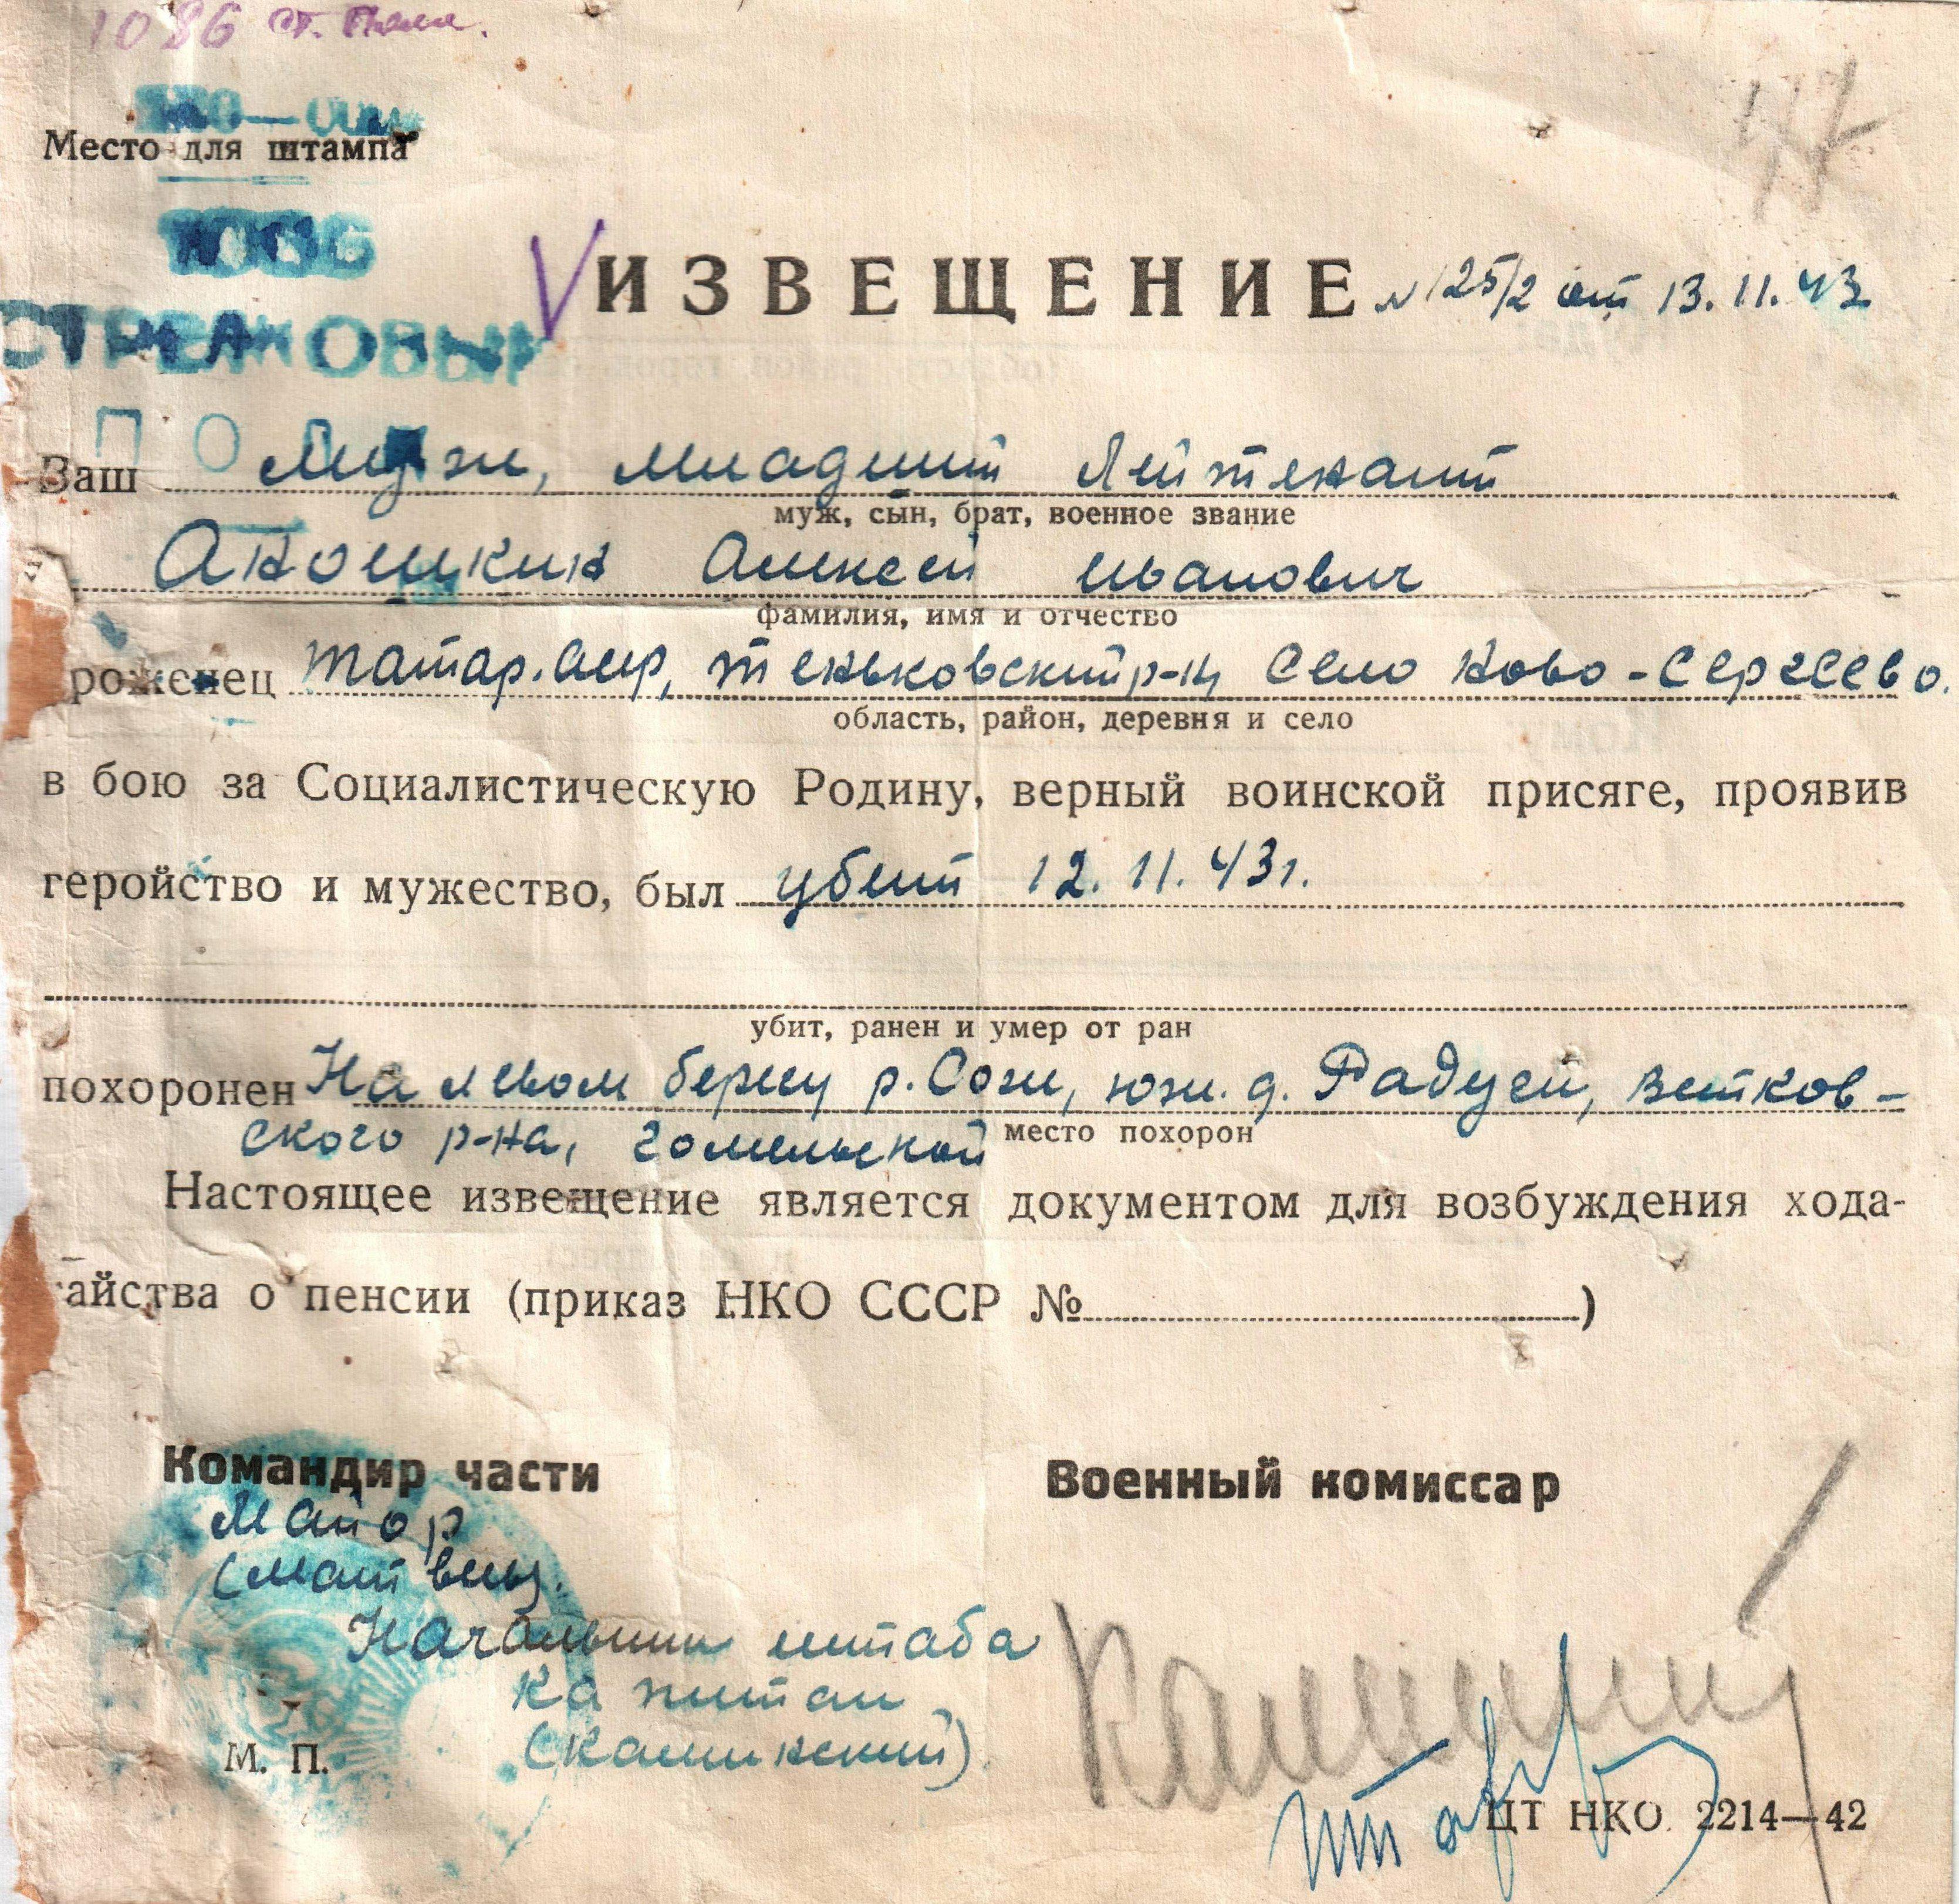 1086 ст. полк.
Место для штампа
НКО—СССР
1086
СТРЕЛКОВЫЙ
ПОЛК
ИЗВЕЩЕНИЕ № 125/2 от 13.11.43
Ваш Муж, младший Лейтенант
муж, сын, брат, военное звание
Аношкин Алексей Иванович
фамилия, имя и отчество
роженец Татар. АССР, Теньковский р-н, Село Ново-Сергеево.
область, район, деревня и село
в бою за Социалистическую Родину, верный воинской присяге, проявив
геройство и мужество, был убит 12.11.43г.
убит, ранен и умер от ран
похоронен На левом берегу р. Сож, юж. д. Радуеи, Ветков-
ского р-на, Гомельской
место похорон
Настоящее извещение является документом для возбуждения хода-
айства о пенсии (приказ НКО СССР № )
Командир части
Военный комиссар
Майор
(Матвеев).
Начальник штаба
Капитан
(Калинский).
М. П.
ЦТ НКО 2214—42